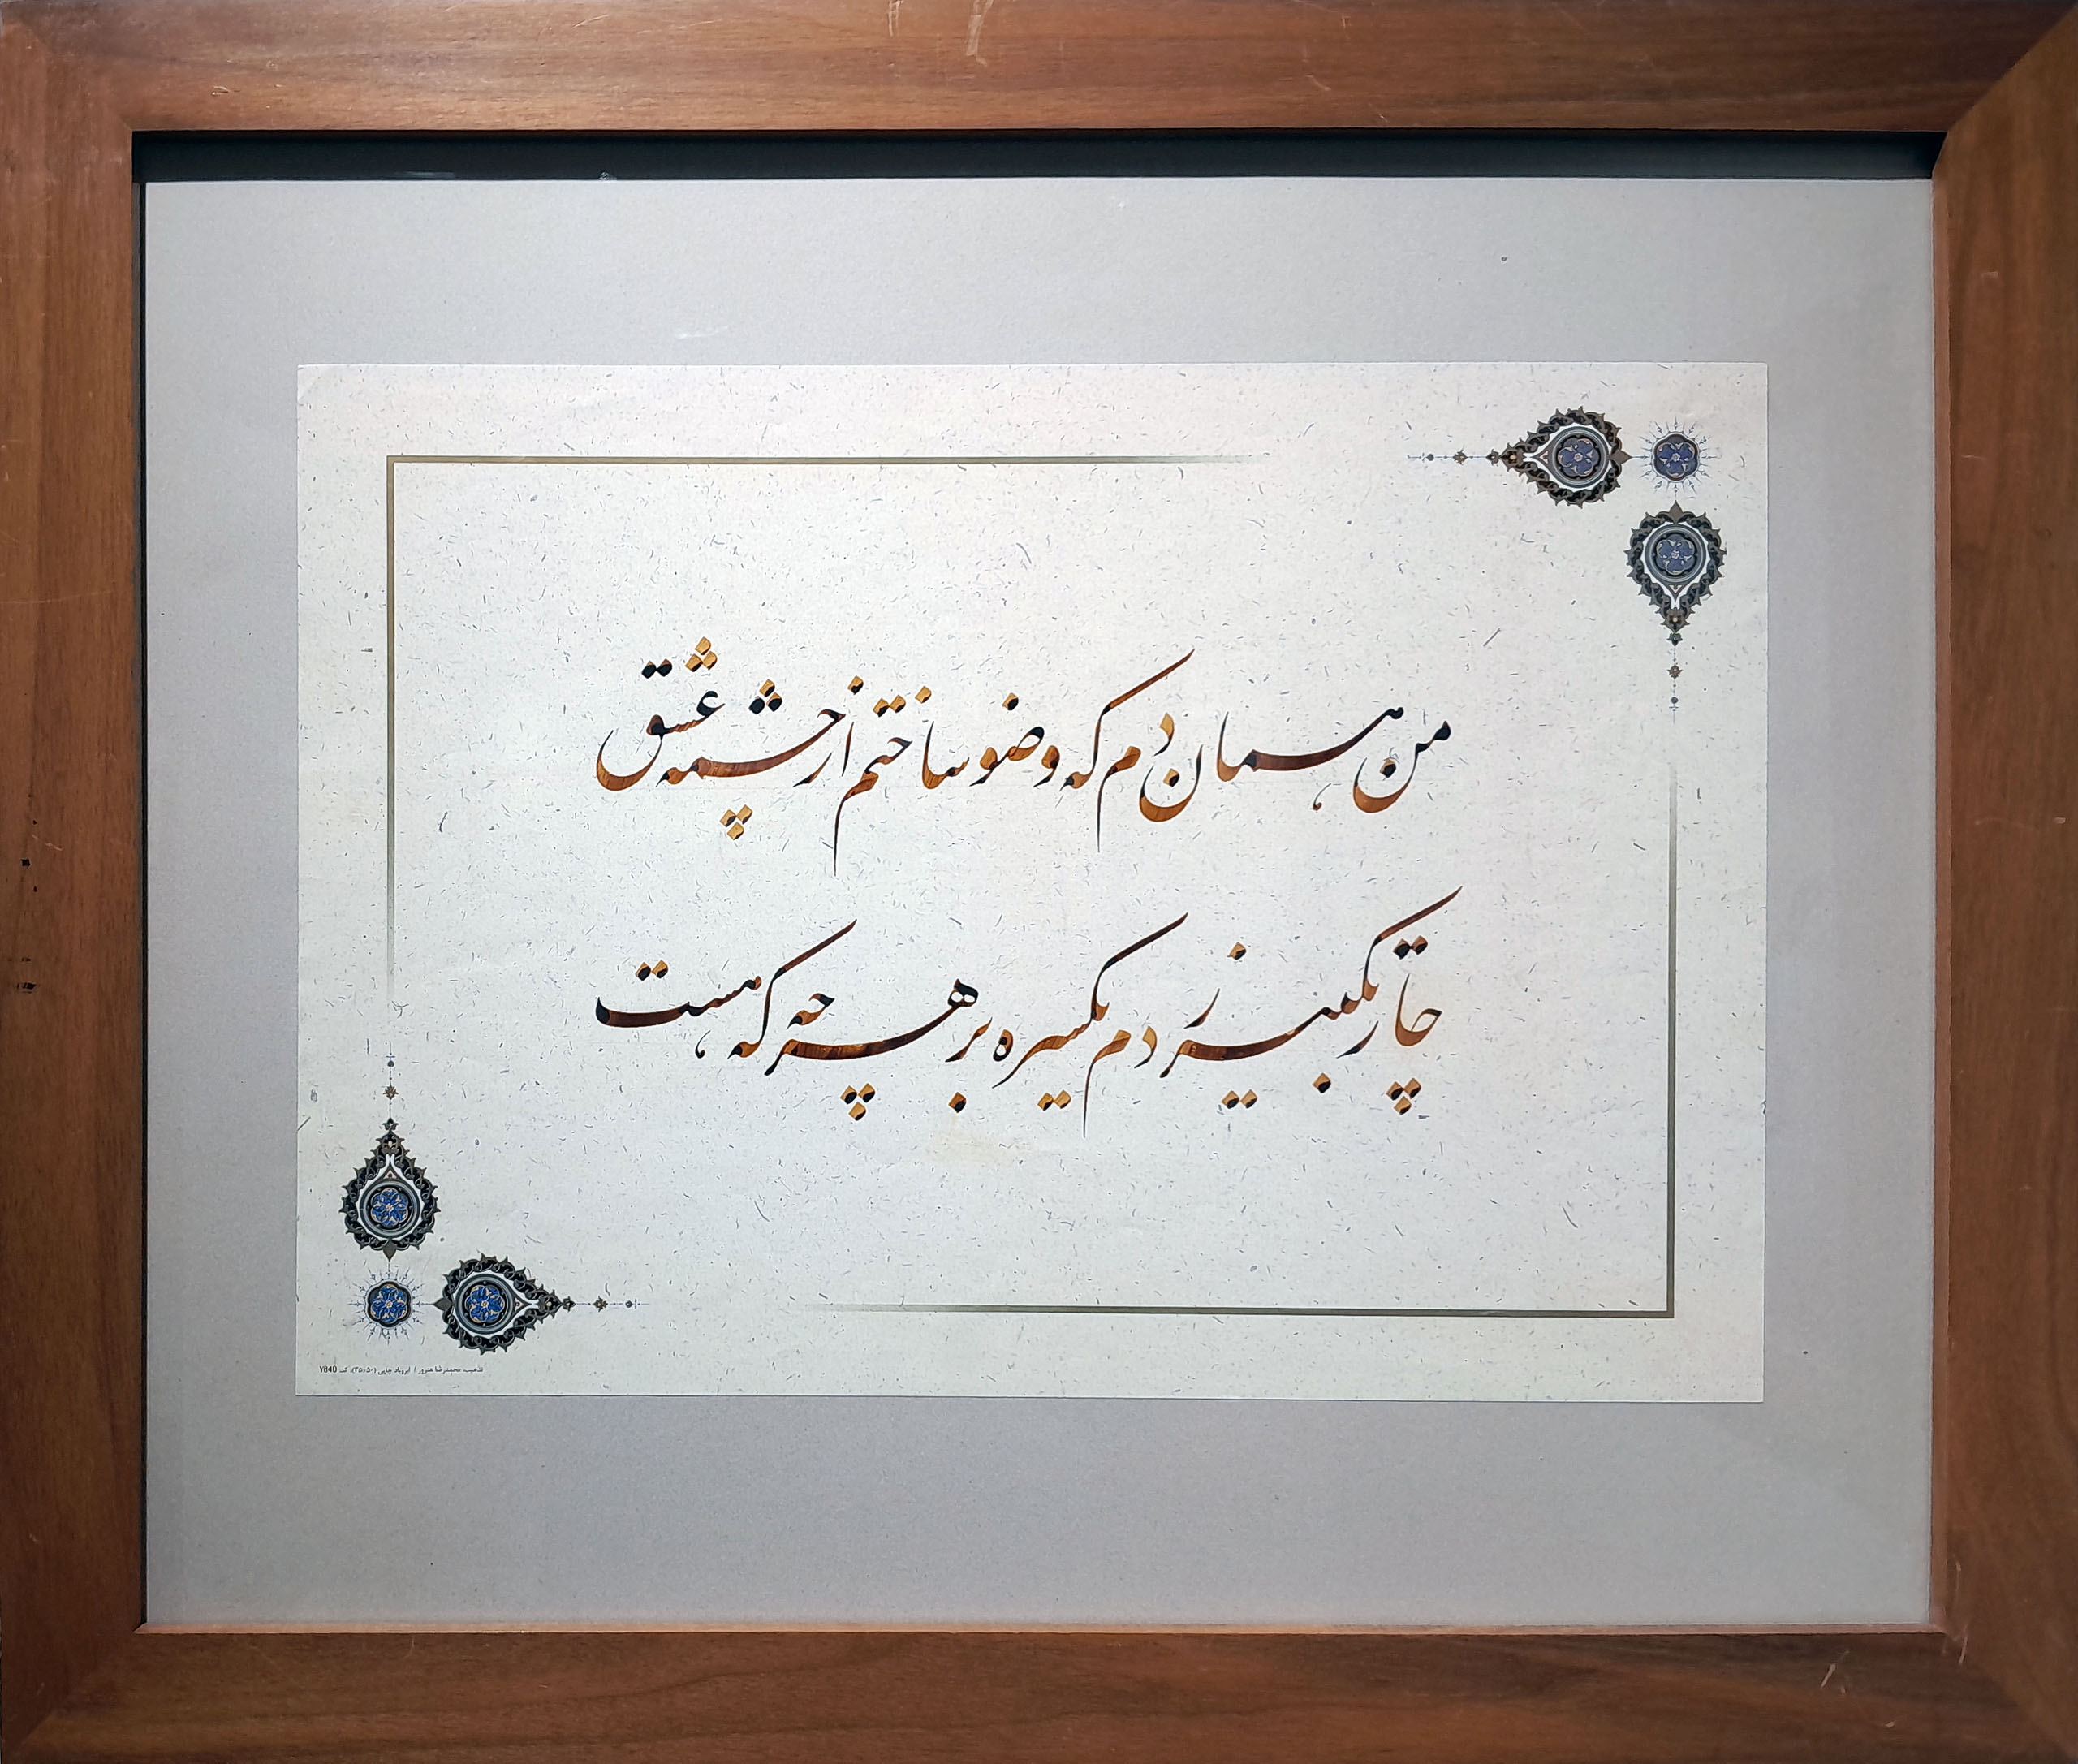 من همان دم که وضو ساختم از چشمه عشق
چار تکبیر زدم یکسره بر هر چه که هست
تذهیب محمدرضا هنرور / ابروباد چاپی (۵۰×۳۵)، کد Y840